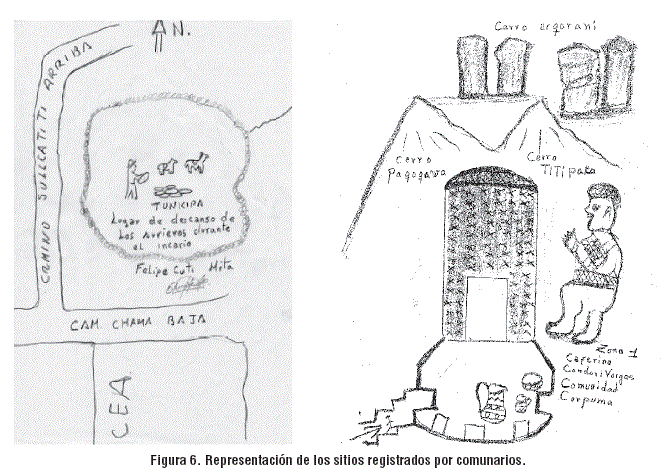 N.
CAMINO SULLCATITI ARRIBA
TUNKIPA
Lugar de descanso de
los Arrieros durante
el incario
Felipe Cuti Mita
CAM. CHAMA BAJA
CEA
Cerro
Pagogawa
Cerro
TITipaka
Zona 1
Ceferino
Condori Vargas
Comunidad
Corpuma
Figura 6. Representación de los sitios registrados por comunarios.